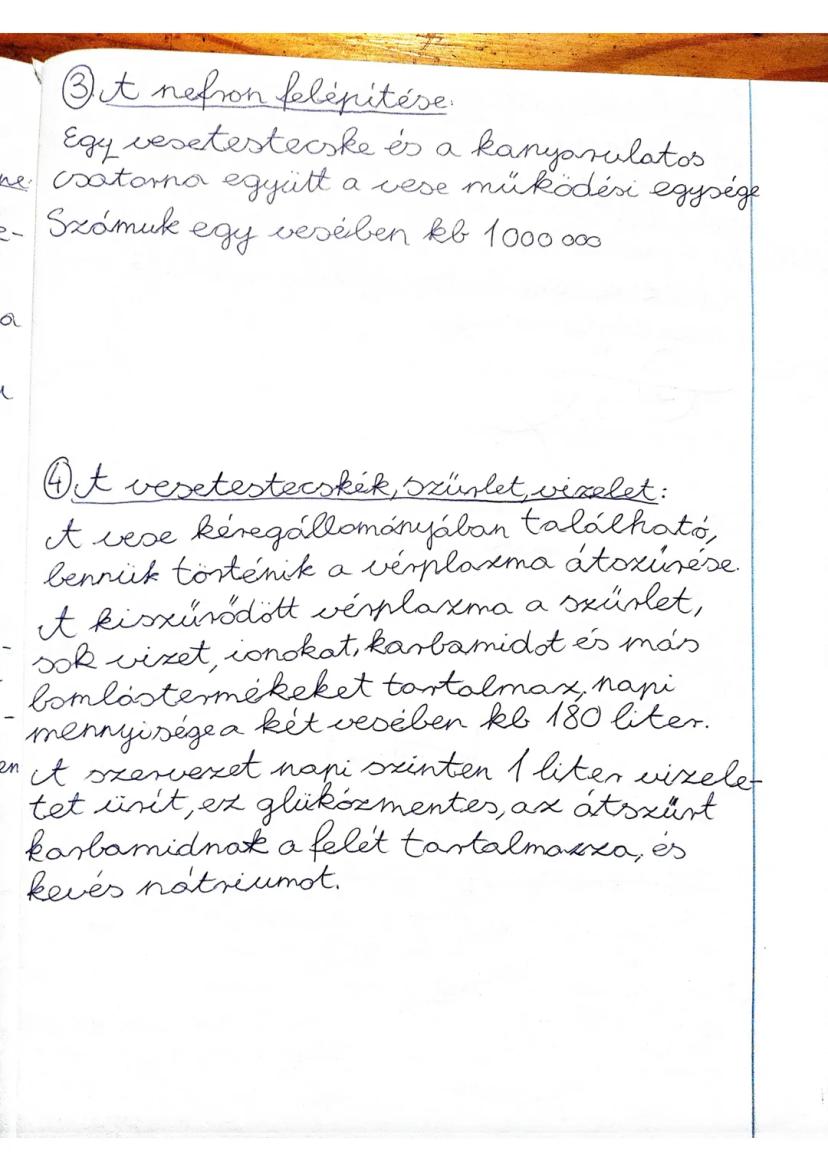 ③ A nefron felépitése:
Egy vesetestecske és a kanyarulatos
csatorna együtt a vese működési egysége
Számuk egy vesében kb 1000 000
④ A vesetestecskék, szűrlet, vizelet:
A vese kéregállományában található,
bennük történik a vérplazma átszűrése.
A kiszűrődött vérplazma a szűrlet,
sok vizet, ionokat, karbamidot és más
bomlástermékeket tartalmaz, napi
mennyisége a két vesében kb 180 liter.
A szervezet napi szinten 1 liter vizele-
tet ürít, ez glükózmentes, az átszűrt
karbamidnak a felét tartalmazza, és
kevés nátriumot.